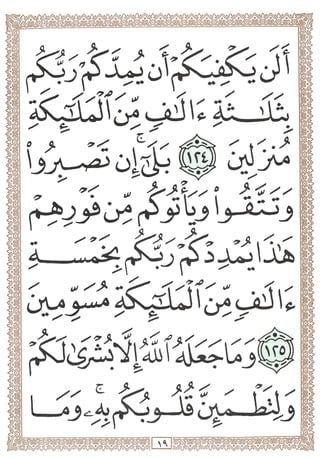 أَلَن يَكْفِيَكُمْ أَن يُمِدَّكُمْ رَبُّكُم
بِثَلَٰثَةِ ءَالَٰفٍ مِّنَ ٱلْمَلَٰٓئِكَةِ
مُنزَلِينَ ١٢٤ بَلَىٰٓ ۚ إِن تَصْبِرُوا۟
وَتَتَّقُوا۟ وَيَأْتُوكُم مِّن فَوْرِهِمْ
هَٰذَا يُمْدِدْكُمْ رَبُّكُم بِخَمْسَةِ
ءَالَٰفٍ مِّنَ ٱلْمَلَٰٓئِكَةِ مُسَوِّمِينَ
١٢٥ وَمَا جَعَلَهُ ٱللَّهُ إِلَّا بُشْرَىٰ لَكُمْ
وَلِتَطْمَئِنَّ قُلُوبُكُم بِهِۦ ۗ وَمَا
١٩